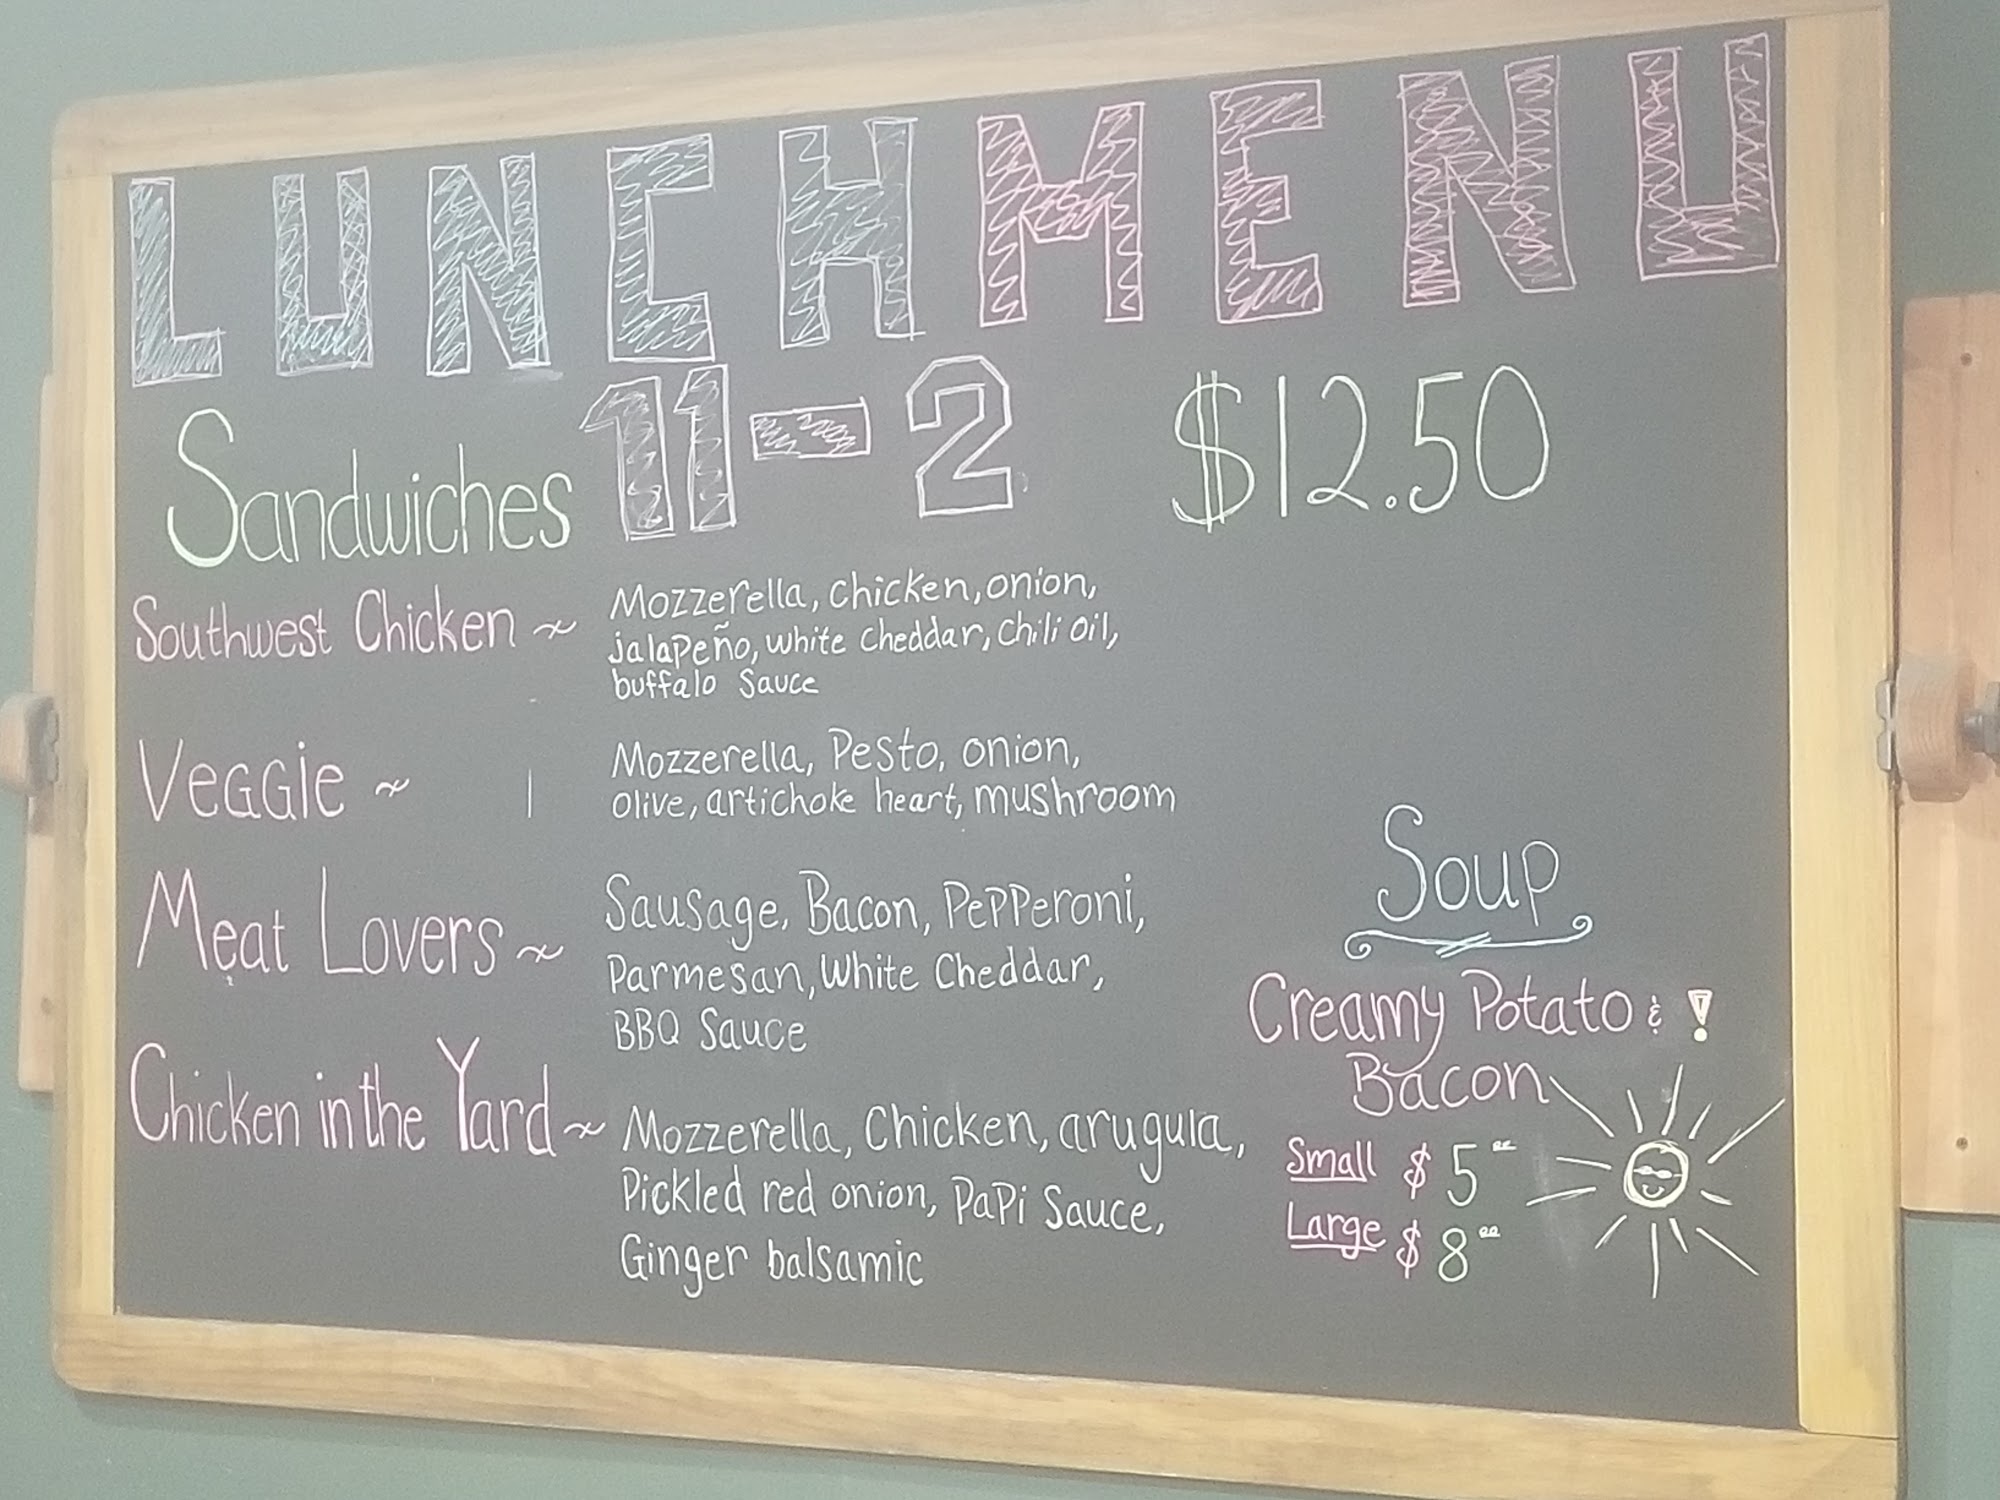 LUNCH MENU
Sandwiches 11-2 $12.50
Southwest Chicken ~ Mozzerella, chicken, onion,
jalapeño, white cheddar, chili oil,
buffalo sauce
Veggie ~ Mozzerella, Pesto, onion,
olive, artichoke heart, mushroom
Meat Lovers ~ Sausage, Bacon, Pepperoni,
Parmesan, White Cheddar,
BBQ Sauce
Chicken in the Yard ~ Mozzerella, Chicken, arugula,
Pickled red onion, PaPi Sauce,
Ginger balsamic
Soup
Creamy Potato & !
Bacon
Small $5.00
Large $8.00